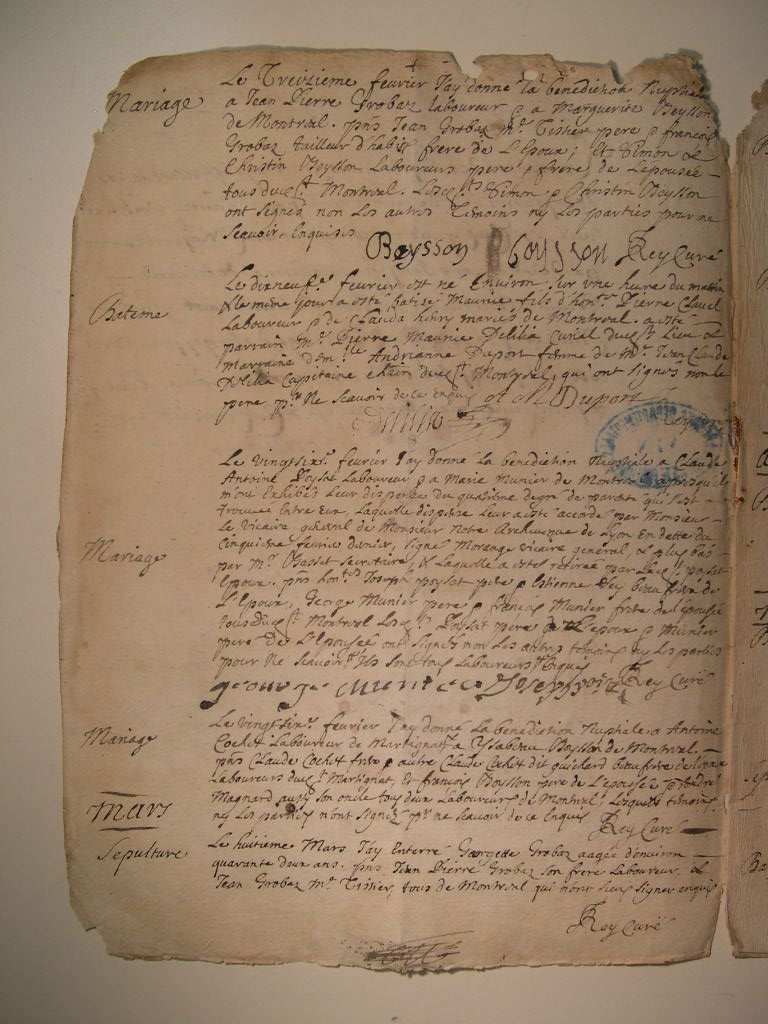 Mariage
Le Treizieme fevrier Jay donné la benediction Nuptiale
a Jean Pierre Grobaz laboureur & a Margueritte Beysson
de Montreal. pnts Jean Grobaz Mre Tissier pere & francois
Grobaz tailleur d'habits frere de L'Epoux; Et Simon &
Christin Beysson Laboureurs pere & frere de Lepousée
tous dud. Montreal. Lesd. Simon & Christin Beysson
ont signés non Les autres Temoins ny Les parties pour ne
scavoir, Enquises
Beysson Boysson Rey Curé
Bateme
Le dixneufe fevrier est né Environ sur une heure du matin
& le meme jour a esté batisé Maurice fils d'honle Pierre
Laboureur & de Clauda mariés de Montreal. a esté
parrain Mre Pierre Maurice Delilia Curial dud. Lieu &
Marraine demlle Andrianne Duport femme de Mr Jean Claude
Delilia Capitaine chatain dud. Montreal, qui ont signés non le
pere pr Ne scavoir de ce enquis
A M Duport
Mariage
Le vingtsixe fevrier Jay donné La benediction Nuptiale a Claude
Antoine Poysat Laboureur & a Marie Munier de Montreal apres qu'ils
m'ont Exhibés Leur dispense du quatrieme degré de parenté qui s'est
trouvée Entre Eux, Laquelle dispense Leur a esté accordé par Monsieur
Le vicaire general de Monsieur Notre Archeveque de Lyon En datte du
Cinquieme fevrier dernier, signé Morange vicaire general, & plus bas
par Mr Basset Secretaire, & Laquelle a esté retirée par Led. Poysat
Epoux. pnts honts Joseph Poysat pere & Estienne Rey beau frere de
L'Epoux, George Munier pere & francois Munier frere de l'epousée
tous Dud. Montreal Lesd. Poysat pere de L'epoux & Munier
pere de L'Epousée ont signés non Les autres temoins ny Les parties
pour Ne scavoir Ils sont tous Laboureurs Enquis
george munier Rey Curé
Mariage
Le vingtsixe fevrier Jay donné La benediction Nuptiale a Antoine
Cochet Laboureur de Martignat & a Ysabeau Beysson de Montreal.
pnts Claude Cochet frere & autre Claude Cochet dit Guichard beau frere de L'epoux
Laboureurs dud. Martignat, Et francois Beysson pere de L'epousée & André
Magnard aussy son oncle tous deux Laboureurs de Montreal Lesquels temoins
ny Les parties n'ont signés pr ne scavoir de ce Enquis
Rey Curé
Mars
Sepulture
Le huitieme Mars Jay Enterré Georgette Grobaz aagée d'environ
quarante deux ans. pnts Jean Pierre Grobaz son frere Laboureur, &
Jean Grobaz Mre Tissier, tous de Montreal qui n'ont sceus signer enquis
Rey Curé